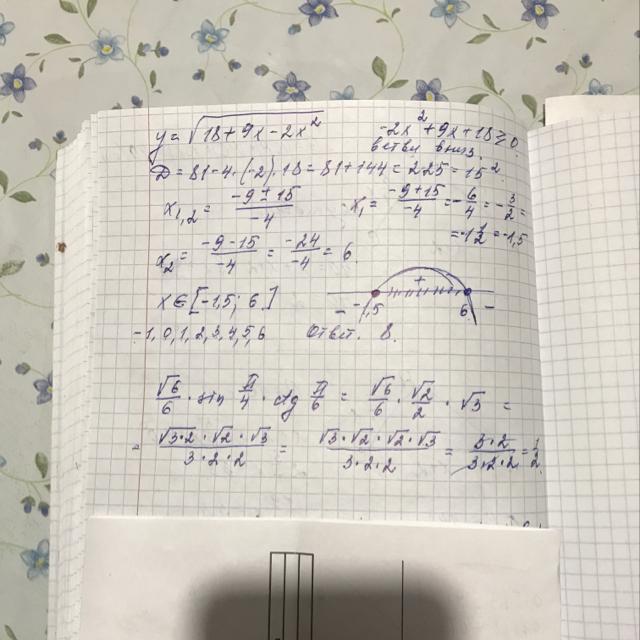 y = √(18+9x-2x²)   -2x²+9x+18≥0
ветви вниз.
D = 81-4·(-2)·18 = 81+144 = 225 = 15²
x₁,₂ = (-9±15)/(-4)   x₁ = (-9+15)/(-4) = -6/4 = -3/2 =
= -1 1/2 = -1,5
x₂ = (-9-15)/(-4) = (-24)/(-4) = 6
x ∈ [-1,5; 6]   - + -
-1,5   6
-1, 0, 1, 2, 3, 4, 5, 6   Ответ. 8.
√6/6 · sin π/4 · ctg π/6 = √6/6 · √2/2 · √3 =
= (√3·2 · √2 · √3)/(3·2·2) = (√3·√2·√2·√3)/(3·2·2) = (3·2)/(3·2·2) = 1/2